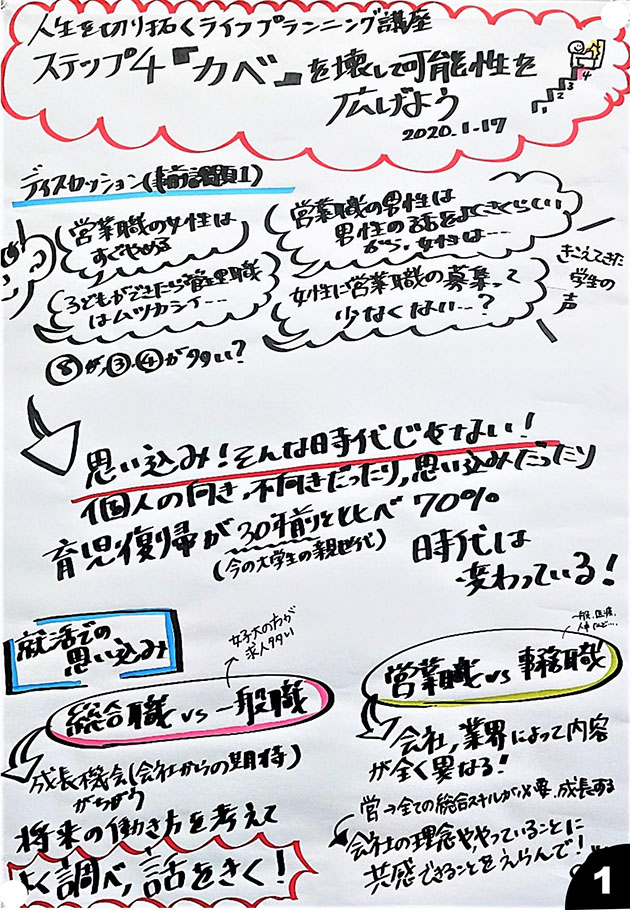 人生を切り拓くライフプランニング講座
ステップ4『カベ』を壊して可能性を
広げよう
2020.1.17
1 2 3 4
ディスカッション(事前課題1)
営業職の女性は
すぐやめる
営業職の男性は
男性の話をよくきくらしい
から、女性は…
子どもができたら管理職
はムツカシイ…
女性に営業職の募集って
少なくない…?
きこえてきた
学生の
声
⑧が,③,④が多い?
思い込み!そんな時代じゃない!
個人の向き,不向きだったり,思い込みだったり
育児復帰が30年前と比べ70%
(今の大学生の親世代)
時代は
変わっている!
就活での
思い込み
女子大の方が
求人多い
総合職vs一般職
成長機会(会社からの期待)
がちがう
将来の働き方を考えて
よく調べ,話をきく!
一般,医療,
人事など…
営業職vs事務職
会社,業界によって内容
が全く異なる!
営→全ての総合スキルが必要.成長する
会社の理念や,やっていることに
共感できることをえらんで!
1